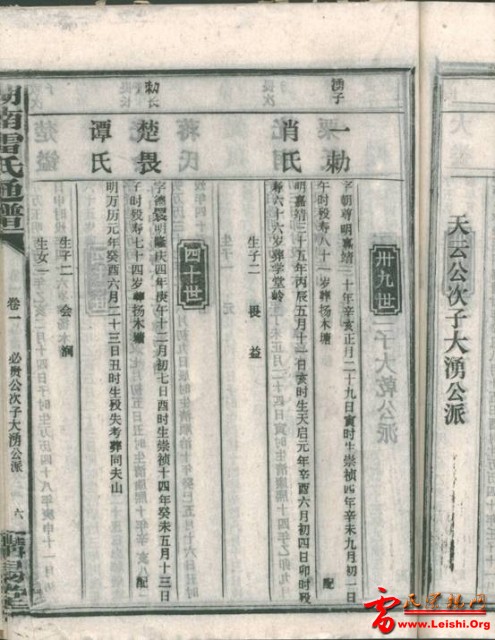 天云公次子大湧公派
卅九世
湧子
一勅
字朝尊明嘉靖三十年辛亥正月二十九日亥时生崇祯四年辛未九月初一日
午时殁寿八十一岁葬扬木塘
配
肖氏
明嘉靖三十五年丙辰五月十一日亥时生天启元年辛酉六月初四日卯时殁
寿六十六岁葬学堂岭
生子二 畏 益
四十世
勅长
楚畏
字德震明隆庆四年庚午十二月初七日酉时生崇祯十四年癸未五月十三日
子时殁寿七十四岁葬扬木塘
配
谭氏
明万历元年癸酉六月二十三日丑时生殁失考葬同夫山
生子二 会 润
生女一
湖南雷氏通谱
卷一
必贵公次子大湧公派
六
雷氏宗亲网
www.Leishi.Org